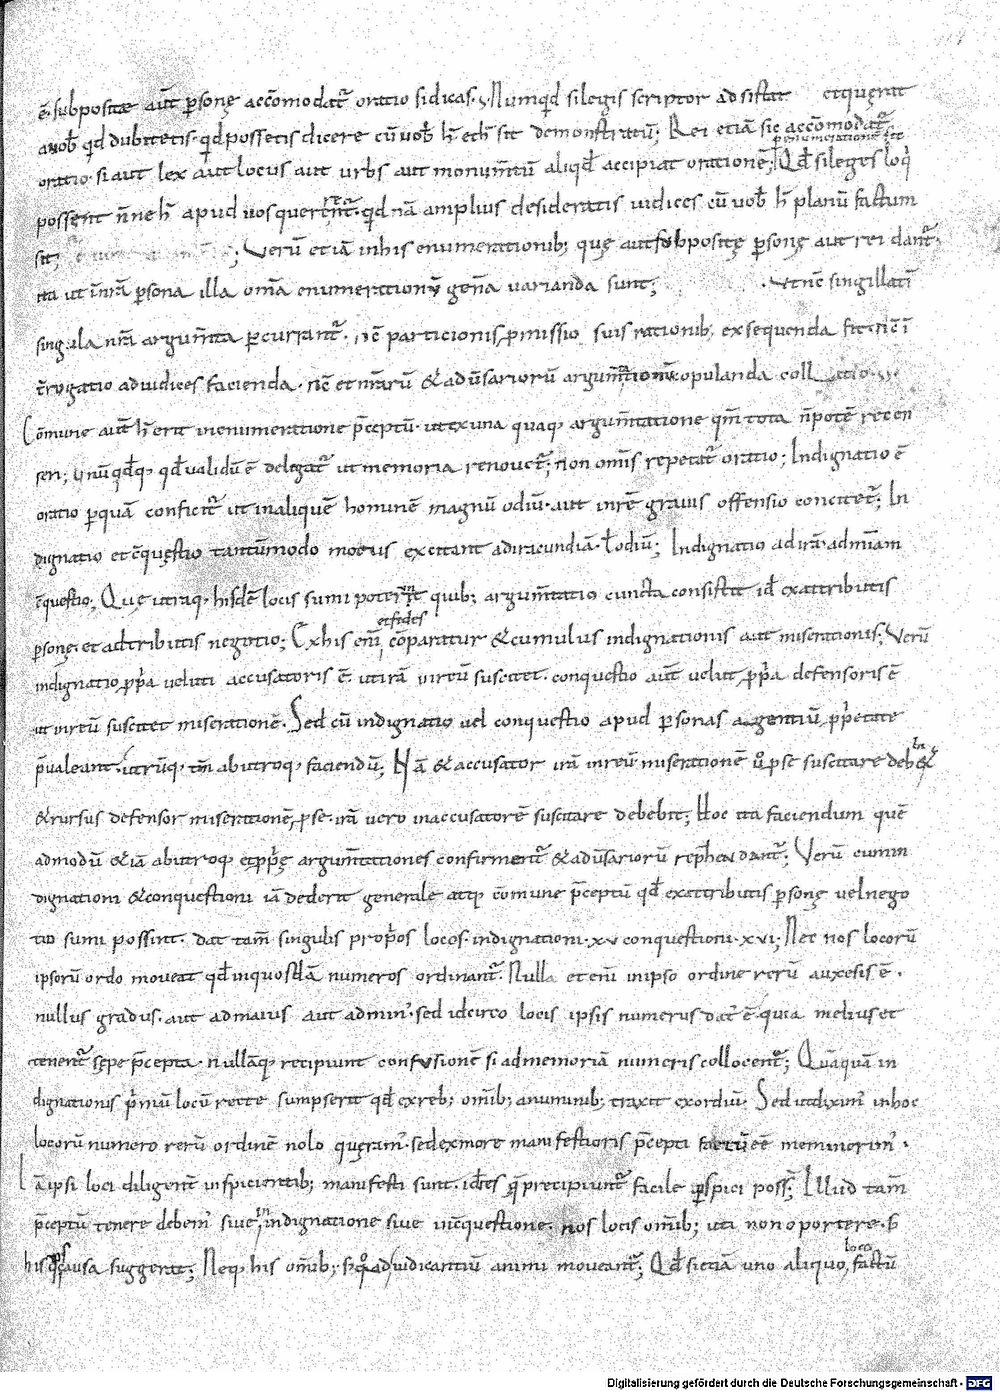 ē. subpositae aut̄ p̄sonę accōmodat᷑ oratio si dicas; Numq̇d si legis scriptor adsistat etquęrat
auob̄ q̇d dubitetis. q̇d possetis dicere cū uob̄ h̄ et h̄ sit demonstratū; Rei etiā sic accōmodat᷑
p enumerationē
oratio. si aut lex aut locus aut urbs aut monum̄tū aliqd̄ accipiat orationē; Qd̄ si leges loq̇
possent n̄ne h̄ apud uos querer̄nt᷑. q̇d nā amplius desideratis iudices cū uob̄ h̄ planū factum
sit; Verū etiā inhis enumerationib; quę aut subpositę p̄sonę aut rei dant᷑.
ita ut in̄rā p̄sona illa om̄a enumerationū gen̄a uarianda sunt; ut n̄c singillatī
singula nr̄a argum̄ta p̄currant᷑. n̄c particionis p̄missio suis rationib; exsequenda sit. n̄c ī
t̄rogatio adiudices facienda. n̄c et nr̄arū & adūsariorū argum̄tationū copulanda coll
Cōmune aut̄ h̄ erit inenumeratione p̄ceptū. ut ex una quaq; argum̄tatione qm̄ tota n̄ potē recen
seri; unū qd̄q; qd̄ualidū ē delegat᷑ ut memoria renouet᷑; non om̄is repetat᷑ oratio; Indignatio ē
oratio p̄quā conficit᷑ ut inaliquē hominē magnū odiū. aut inrē grauis offensio concitet᷑; In
dignatio et c̄quęstio tantūmodo motus excitant adiracundiā. t̄ odiū; Indignatio adirā. admīam
c̄questio; Que utraq; hisdē locis sumi poter̄nt quib; argum̄tatio cuncta consistit id̄ exattributis
et fides
p̄sonę. et adtributis negotio; Ex his eni᷑ cōparatur & cumulus indignationis aut miserationis; Verū
indignatio, p̄p̄a ueluti accusatoris ē. ut irā inreū suscitet. conquestio aut̄ uelut p̄p̄a defensoris ē
ut inreū suscitet miserationē. Sed cū indignatio uel conquestio apud p̄sonas agentiū p̄p̄etate
p̄ualeant. utrūq; tm̄ abutroq; faciendū; Nā & accusator irā inreū miserationē ů p se suscitare deb&
& rursus defensor miserationē, p se. irā uero inaccusatorē suscitare debebit; Hoc ita faciendum quē
admodū & iā abutroq; et p̄p̄ę argum̄tationes confirment᷑ & adūsariorū rep̄hendant᷑; Verū cumin
dignationi & conquestioni iā dederit generale atq; cōmune p̄ceptū qd̄ exattributis p̄sonę uelnego
tio sumi possint. dat tam̄ singulis propōs locos. indignationi. xv conquestioni. xvi; Nec nos locorū
ipsorū ordo moueat qd̄ inquosdā numeros ordinant᷑. Nulla et enī inipso ordine rerū auxesis ē.
nullus gradus. aut admaius aut admin'. sed idcirco locis ipsis numerus dat᷑ ē. quia melius et
tenent᷑ sępe p̄cepta. nullāq; recipiunt confusionē si admemoriā numeris collocent᷑; Quāquā in
dignationis p̄mū locū recte sumpserit qd̄ exreb; om̄ib; anuminib; traxit exordiū. Sed utdixim' inhoc
locorū numero rerū ordinē nolo quęram'. sedexmore manifestioris p̄cepti factū eē meminerim'.
Iā ipsi loci diligent̄ inspicientib; manifesti sunt. id̄es q̄ precipiunt᷑ facile p̄spici poss̄; Illud tam̄
p̄ceptū tenere debem' siue indignatione siue inc̄questione. nos locis om̄ib; uti non oportere. s̄
his q̄s causa suggerit; Neq; his om̄ib; s; q̄ adiudicantiū animi moueant᷑; Qd̄ si etiā uno aliquo loco factū
Digitalisierung gefördert durch die Deutsche Forschungsgemeinschaft - DFG